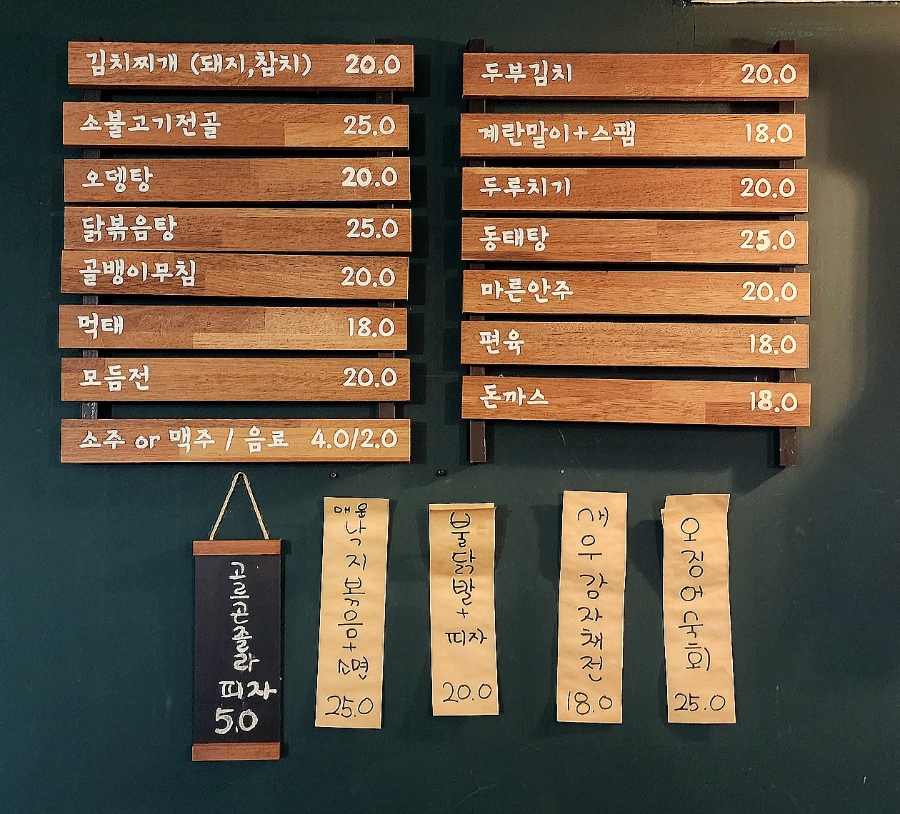 김치찌개 (돼지,참치) 20.0
소불고기전골 25.0
오뎅탕 20.0
닭볶음탕 25.0
골뱅이무침 20.0
먹태 18.0
모듬전 20.0
소주 or 맥주 / 음료 4.0/2.0
두부김치 20.0
계란말이+스팸 18.0
두루치기 20.0
동태탕 25.0
마른안주 20.0
편육 18.0
돈까스 18.0
고르곤졸라
피자
5.0
매운
낙지볶음+
소면
25.0
불닭발+
피자
20.0
새우감자채전
18.0
오징어숙회
25.0